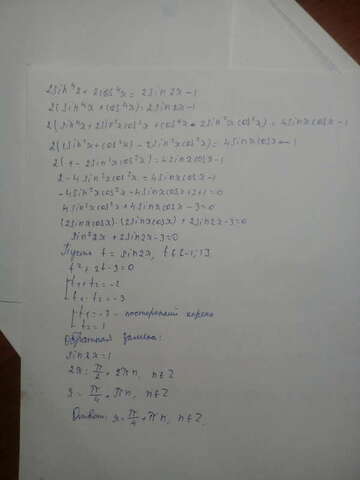 2sin⁴x + 2cos⁴x = 2sin2x - 1
2(sin⁴x + cos⁴x) = 2sin2x - 1
2(sin⁴x + 2sin²xcos²x + cos⁴x - 2sin²xcos²x) = 4sinxcosx - 1
2((sin²x + cos²x) - 2sin²xcos²x) = 4sinxcosx - 1
2(1 - 2sin²xcos²x) = 4sinxcosx - 1
2 - 4sin²xcos²x = 4sinxcosx - 1
-4sin²xcos²x - 4sinxcosx + 2 + 1 = 0
4sin²xcos²x + 4sinxcosx - 3 = 0
(2sinxcosx) · (2sinxcosx) + 2sin2x - 3 = 0
sin²2x + 2sin2x - 3 = 0
Пусть t = sin2x, t ∈ [-1; 1]
t² + 2t - 3 = 0
t₁ + t₂ = -2
t₁ · t₂ = -3
t₁ = -3 - посторонний корень
t₂ = 1
Обратная замена:
sin2x = 1
2x = π/2 + 2πn, n ∈ Z
x = π/4 + πn, n ∈ Z
Ответ: x = π/4 + πn, n ∈ Z.